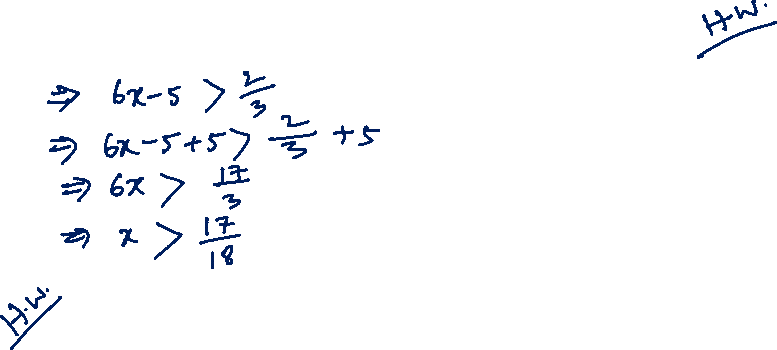 H.W.
⇒ 6x-5 > 2/3
⇒ 6x-5+5 > 2/3 +5
⇒ 6x > 17/3
⇒ x > 17/18
H.W.